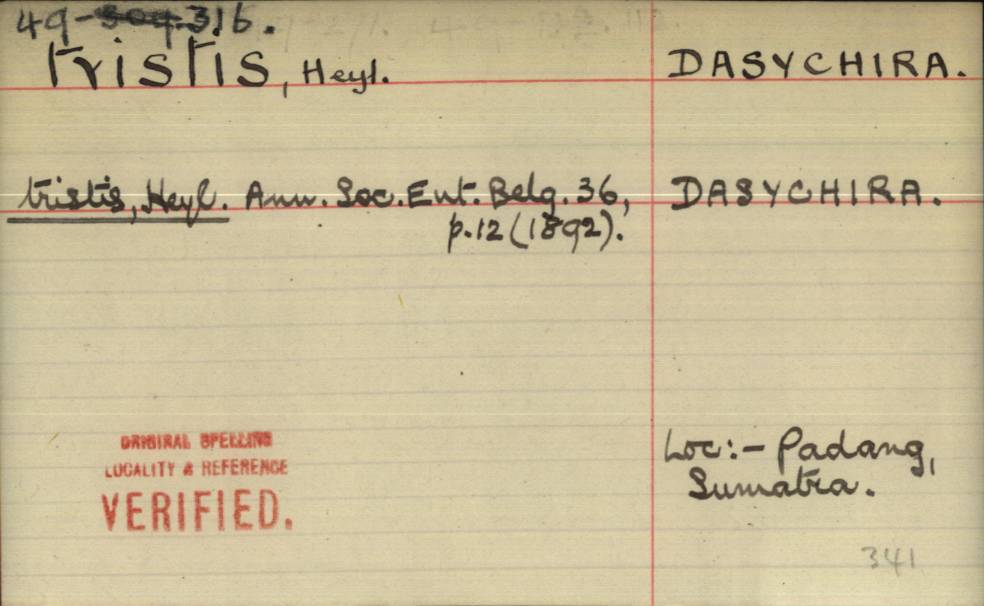 49-316.
tristis, Heyl. DASYCHIRA.
tristis, Heyl. Ann. Soc. Ent. Belg. 36, DASYCHIRA.
p.12 (1892).
ORIGINAL SPELLING
LOCALITY & REFERENCE
VERIFIED.
Loc:- Padang,
Sumatra.
341